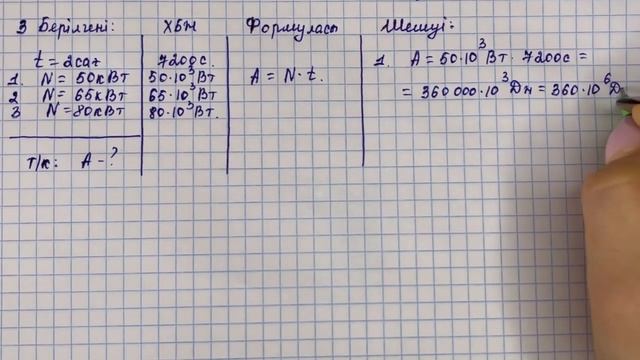 3 Берілгені: ХБЖ Формуласы Шешуі:
t = 2сағ 7200с.
1. N = 50кВт 50·10³Вт
2 N = 65кВт 65·10³Вт
3 N = 80кВт 80·10³Вт.
т/к: A - ?
A = N · t.
1. A = 50·10³Вт · 7200с =
= 360 000·10³Дж = 360·10⁶Д